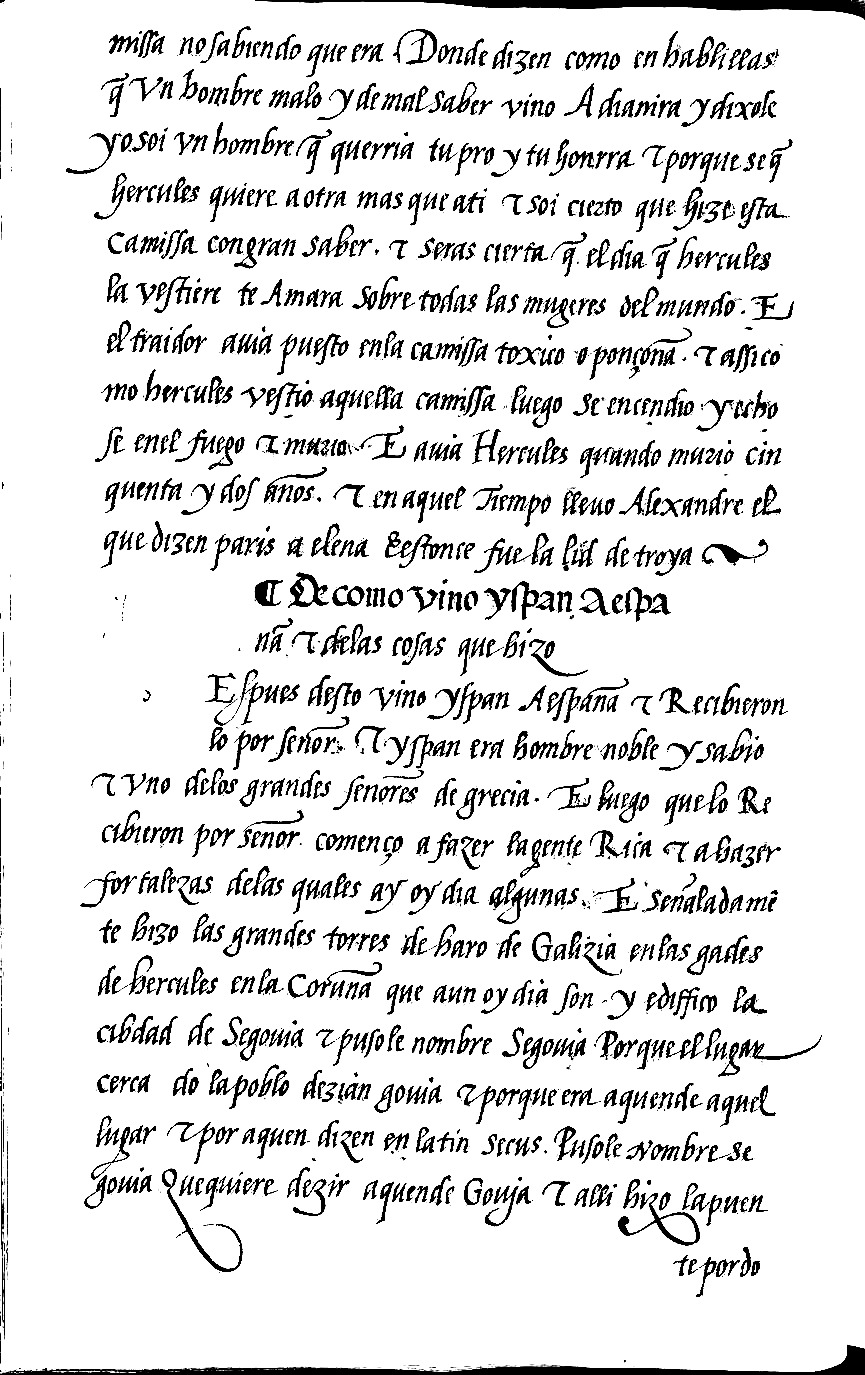 missa no sabiendo que era. Donde dizen como en hablillas
q̃ vn hombre malo y de mal saber vino A dianira y dixole
yo soi vn hombre q̃ querria tu pro y tu honrra τ porque se q̃
hercules quiere a otra mas que a ti τ soi cierto que hize esta
camissa con gran saber. τ seras cierta q̃ el dia q̃ hercules
la vestiere te Amara sobre todas las mugeres del mundo. E
el traidor auia puesto en la camissa toxico o ponçoña. τ assi co
mo hercules vestio aquella camissa luego se encendio y echo
se en el fuego τ murio. E auia Hercules quando murio cin
quenta y dos años. τ en aquel Tiempo lleuo Alexandre el
que dizen paris a elena & estonce fue la lid de troya
¶ De como vino yspan A espa
ña τ de las cosas que hizo
Espues desto vino yspan A españa τ Recibieron
lo por señor. τ yspan era hombre noble y sabio
τ vno de los grandes señores de grecia. E luego que lo Re
cibieron por señor començo a fazer la gente Rica τ a hazer
fortalezas de las quales ay oy dia algunas. E señaladamẽ
te hizo las grandes torres de haro de Galizia en las gades
de hercules en la Coruña que aun oy dia son. y ediffico la
cibdad de Segouia τ pusole nombre Segouia Porque el lugar
cerca do la poblo dezian gouia τ porque era aquende aquel
lugar τ por aquen dizen en latin secus. Pusole nombre se
gouia Que quiere dezir aquende Gouja τ alli hizo la puen
te por do